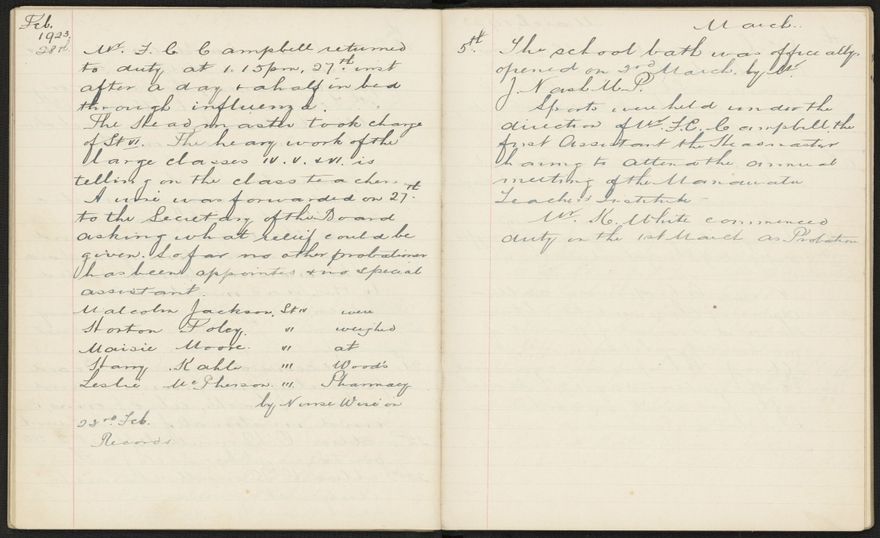 Feb.
1923.
28th. Mr. F. C. Campbell returned
to duty at 1.15pm, 27th. inst
after a day & a half in bed
through influenza.
The Headmaster took charge
of St VI. The heavy work of the
large classes IV. V. & VI. is
telling on the class teacher.
A wire was forwarded on 27th.
to the Secretary of the Board
asking what relief could be
given. So far no other probationer
has been appointed & no special
assistant.
Malcolm Jackson. St IV were
Horton Foley. " weighed
Maisie Moore. VI at
Harry Kahl III Wood's
Leslie McPherson. III. Pharmacy
by Nurse on
22nd Feb.
Records
March.
5th. The school bath was officially
opened on 2nd March. by Mr.
J. Nash M.P.
Sports were held under the
direction of Mr. F.C. Campbell the
first Assistant the Headmaster
having to attend the annual
meeting of the Manawatu
Teachers Institute
Mr. K. White commenced
duty on the 1st March as Probation